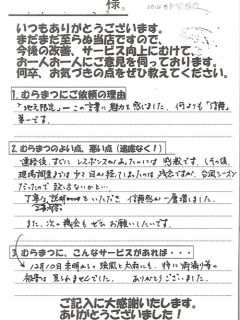 様
いつもありがとうございます。
まだまだ至らぬ当店ですので、
今後の改善、サービス向上にむけて、
お一人お一人にご意見を伺っております。
何卒、お気づきの点をぜひ教えてください。
1.むらまつにご依頼の理由
「地元限定」ーこの言葉に魅力を感じました。何よりも「信頼」
第一です。
2.むらまつのよい点、悪い点(遠慮なく!)
連絡後、すぐにレスポンスがあったのには感激です。(その後、
現場調査までは少々日が経ってしまったのは残念ですが、台風シーズン
だったので致し方ないか…
丁寧な説明をいただき、信頼感が一層増しました。
また、次の機会もぜひお願いしたいです。
3.むらまつに、こんなサービスがあれば・・・
12月10日未明からの強風と大雨にも、特に雨漏り等の
被害は見られませんでした。ありがとうございました。
ご記入に大感謝いたします。
ありがとうございました!